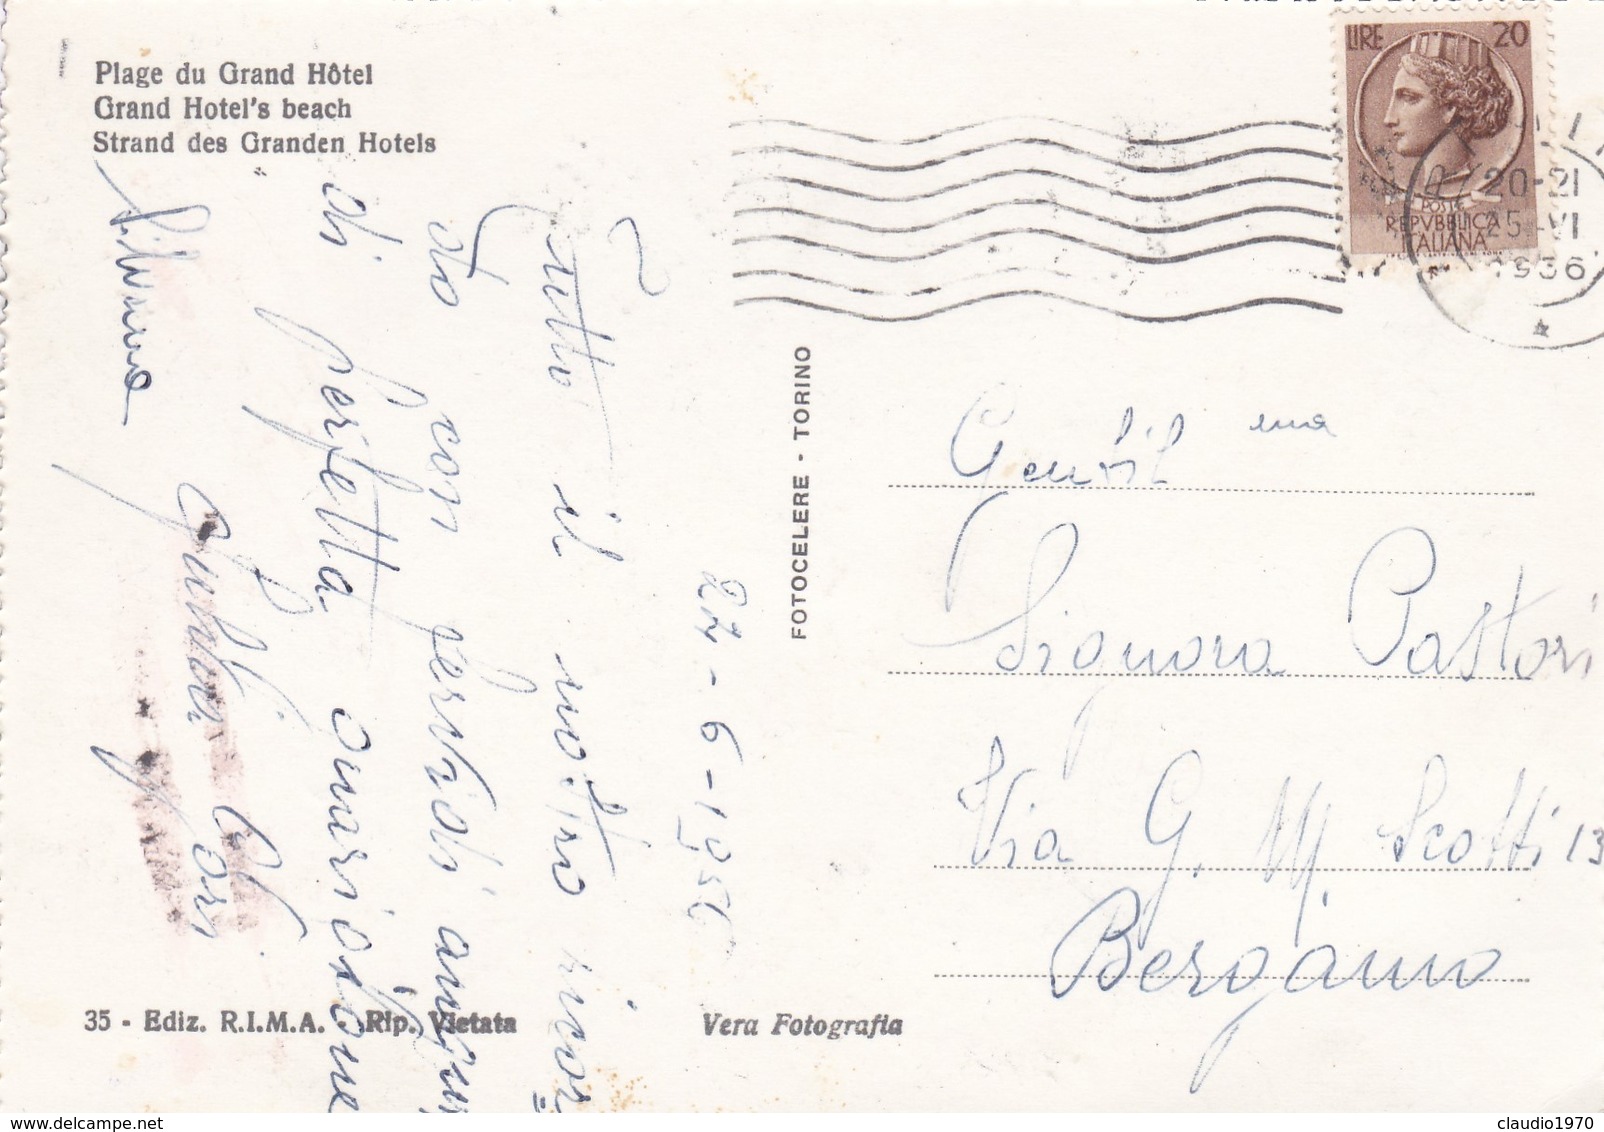 Plage du Grand Hôtel
Grand Hotel's beach
Strand des Granden Hotels
LIRE 20
POSTE
REPVBBLICA
ITALIANA
20-21
25 VI
1956
24-6-1956
Tutto il nostro ricor
do con fervidi augur
di perfetta guarigione
FOTOCELERE - TORINO
Gentil ma
Signora Pastori
Via G. M. Scotti 13
Bergamo
35 - Ediz. R.I.M.A. Rip. Vietata
Vera Fotografia
claudio1970